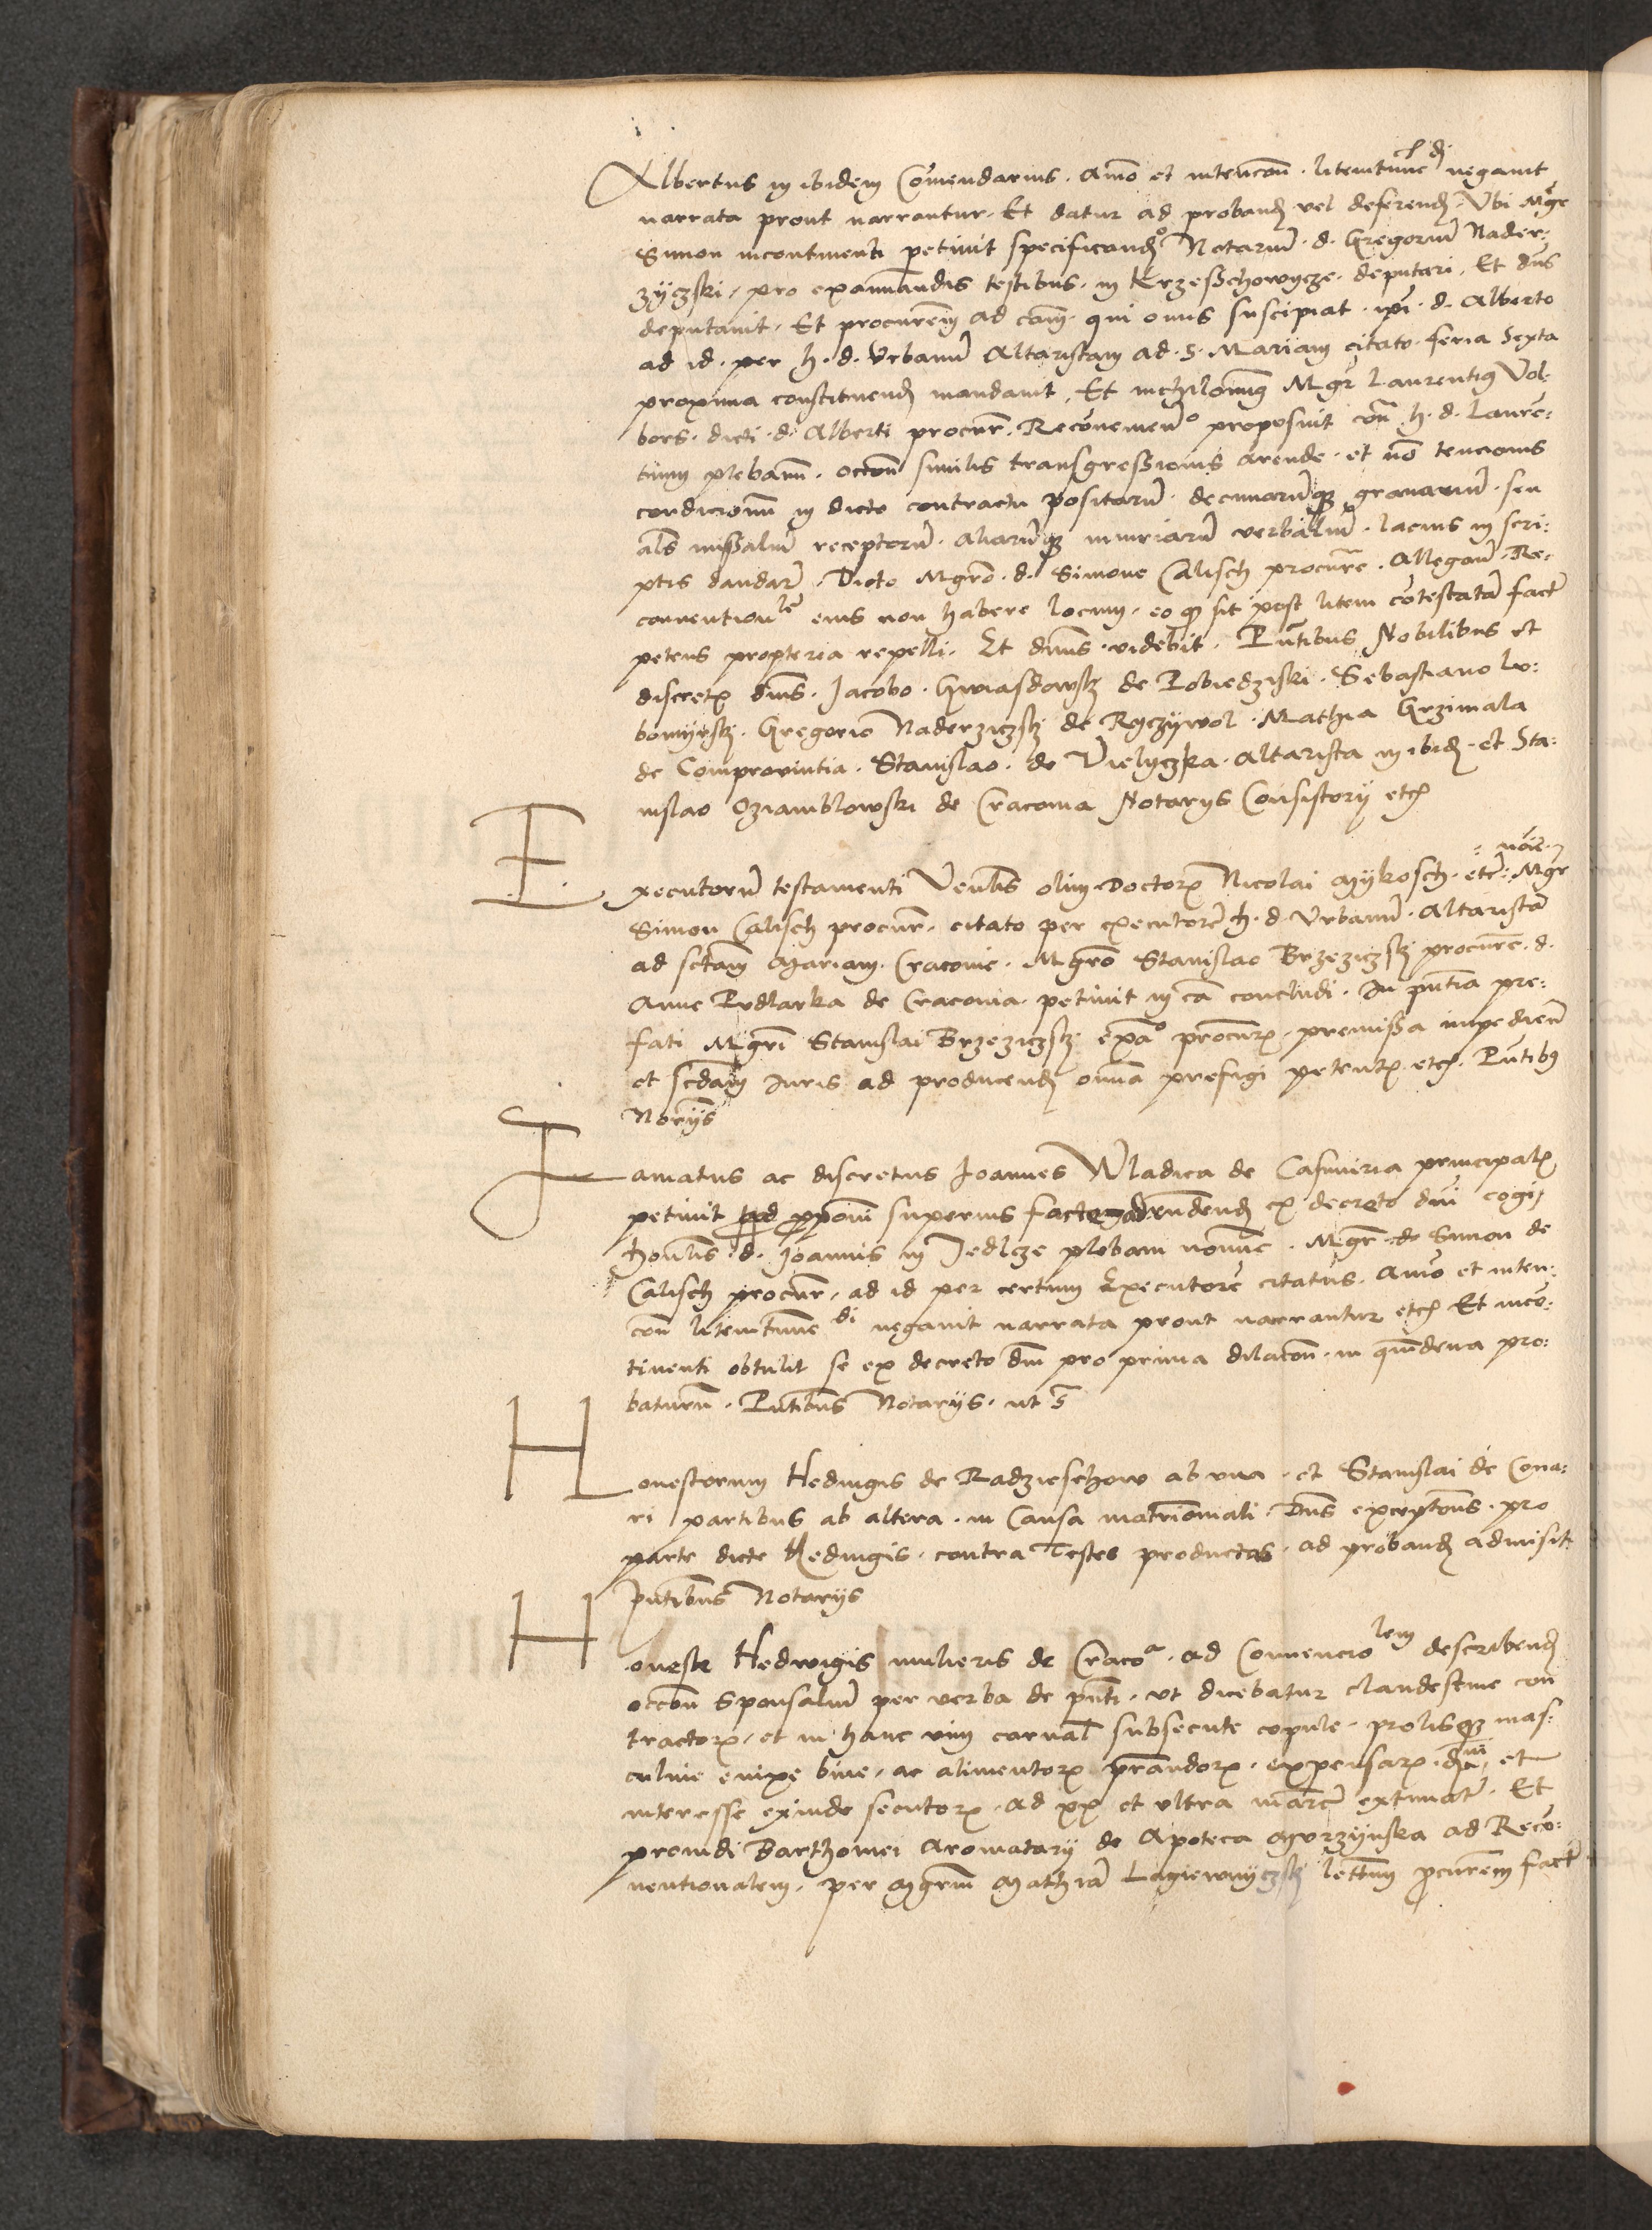 Albertus in ibidem Comendarius. Aīmo et intencōn. litem tunc negavit
narrata prout narrantur. Et datur ad proband vel deferend. Vbi Mgr
Simon incontinenti petivit specificando Notariū. d. Gregoriū Nader:
ziczski, pro examinandis testibus. in Krzeschowycze. deputari. Et dns
deputavit. Et procurem ad cam. qui onus suscipiat. ipī. d. Alberto
ad id. per h. d. Vrbanū Altaristam ad. S. Mariam citato. feria Sexta
proxima constituend mandavit. Et nichilomin9 Mgr Laurenti9 Vol:
bors. dicti. d. Alberti procur. proposuit con h. d. Lauren:
tium plebanū. occōn similis transgressionis arende. et nō tencionis
condicionū in dicto contractu positarū. decimarūq granariū. seu
als missaliū receptorū. aliarūq iniuriarū verbaliū. lacius in scri:
ptis dandarū. Dicto Mgrō. d. Simone Calisch procure. Allegavit. Re:
conventionle eius non habere locum. eo q sit post litem cōtestatā factū
petens propterea repelli. Et dnūs videbit. Pntibus Nobilibus et
discretis dnis. Jacobo. Gwiasdowsky de Pobiedziski. Sebastiano Lu:
bomyrsky. Gregorio Naderziczsky de Ryczywol. Mathia Grzimala
de Comprovintia. Stanislao. de Vielyczka. Altarista in ibid. et Sta:
nislao Oziamblowski de Cracovia Notarys Consistory etc
Executorū testamenti Venlis olim Doctoris Nicolai Mykosch. etc: Mgr
Simon Calisch procur. citato per executore h. d. Vrbanū. Altaristā
ad sctam Mariam. Cracovie. Mgrō Stanislao Brzeziczsky procure. d.
Anne Pudlarka de Cracovia. petivit in ca concludi. In pntia pre:
fati Mgri Stanislai Brzeziczsky exa procuris. premissa impedien
et scdam Iuris ad producend omnia prefigi petentis etc. Pntib9
Norys
Famatus ac discretus Joannes Wladica de Casimiria principalis
petivit ppōni superius facte ndend ex decreto dni cogi
honlis. d. Joannis in Jedlcze plebani noīne. Mgr de Simon de
Calisch procur, ad id per certum Executore citatus. aīmo et inten:
con litem tunc di negavit narrata prout narrantur etc Et incō:
tinenti obtulit se ex decreto dni pro prima dilacōn. in quindena pro:
baturū. Pntibus Notarys. ut s
Honestorum Hedvigis de Radzieschow ab una. et Stanislai de Cona:
ri partibus ab altera. in Causa matrimoniali. Dns exceptōns. pro
parte dicte Hedvigis. contra Testes productos. ad proband admisit.
Pntibus Notarys
Honeste Hedwigis mulieris de Craco a. ad Convencio lem describend
occōn Sponsaliū per verba de pnti. ut dicebatur clandestine con
tractoris, et in hanc vim carnal subsecute copule. prolisq mas:
culine enixe bine, ac alimentoris prandoris. expensaris. dni, et
interesse exinde secutoris. ad xx et ultra marcas extimatis. Et
providi Barthomei Aromatary de Apoteca Morzynska ad Reco:
nventionalem. per Mgrm Mathiā Lagiewnyczsky lettim pcurem factū